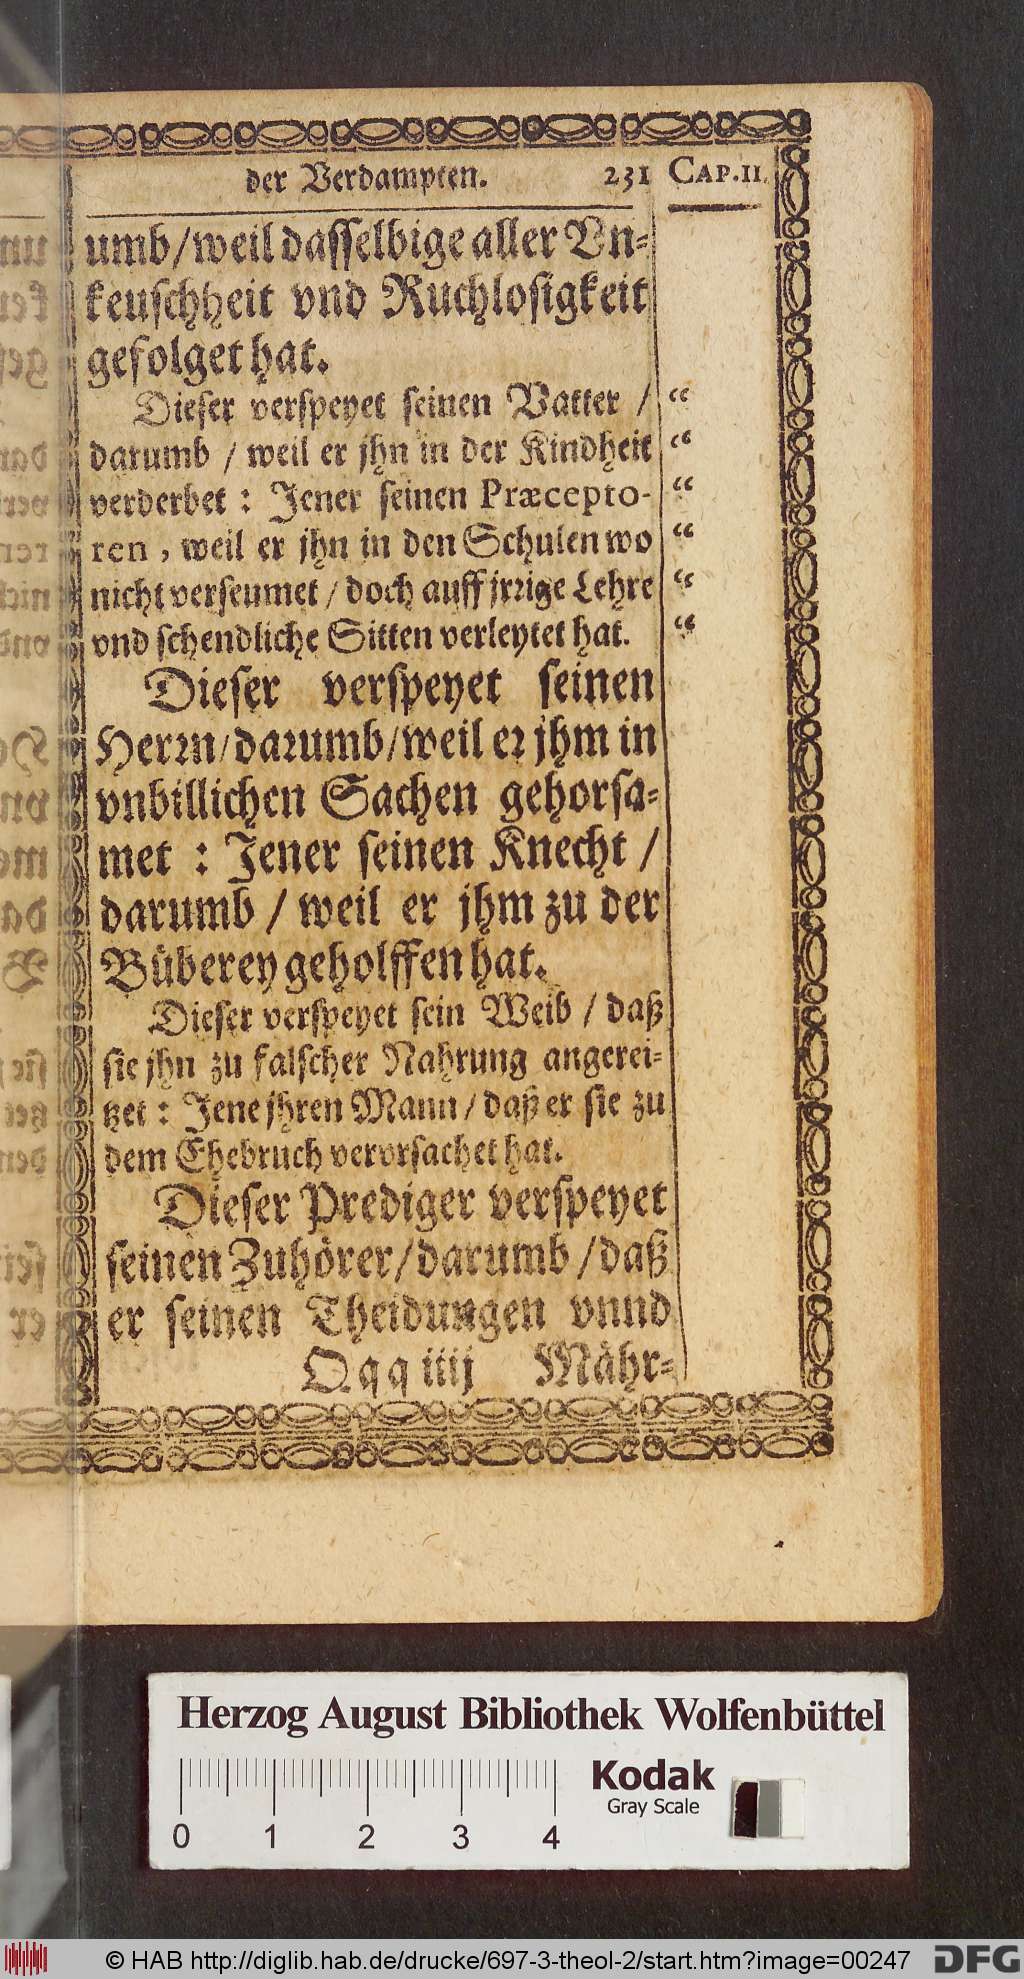 der Verdampten. 231 CAP.II.
umb/weil dasselbige aller Vn-
keuschheit vnd Ruchlosigkeit
gefolget hat.
Dieser verspeyet seinen Vatter / “
darumb / weil er jhn in der Kindheit “
verderbet : Jener seinen Præcepto- “
ren , weil er jhn in den Schulen wo “
nicht verseumet / doch auff jrrige Lehre “
vnd schendliche Sitten verleytet hat. “
Dieser verspeyet seinen
Herrn/darumb/weil er jhm in
vnbillichen Sachen gehorsa-
met : Jener seinen Knecht /
darumb / weil er jhm zu der
Büberey geholffen hat.
Dieser verspeyet sein Weib / daß
sie jhn zu falscher Nahrung angerei-
tzet : Jene jhren Mann / daß er sie zu
dem Ehebruch vervrsachet hat.
Dieser Prediger verspeyet
seinen Zuhörer/darumb/daß
er seinen Theidungen vnnd
Qqq iiij Mähr-
Herzog August Bibliothek Wolfenbüttel
Kodak
Gray Scale
0 1 2 3 4
© HAB http://diglib.hab.de/drucke/697-3-theol-2/start.htm?image=00247 DFG